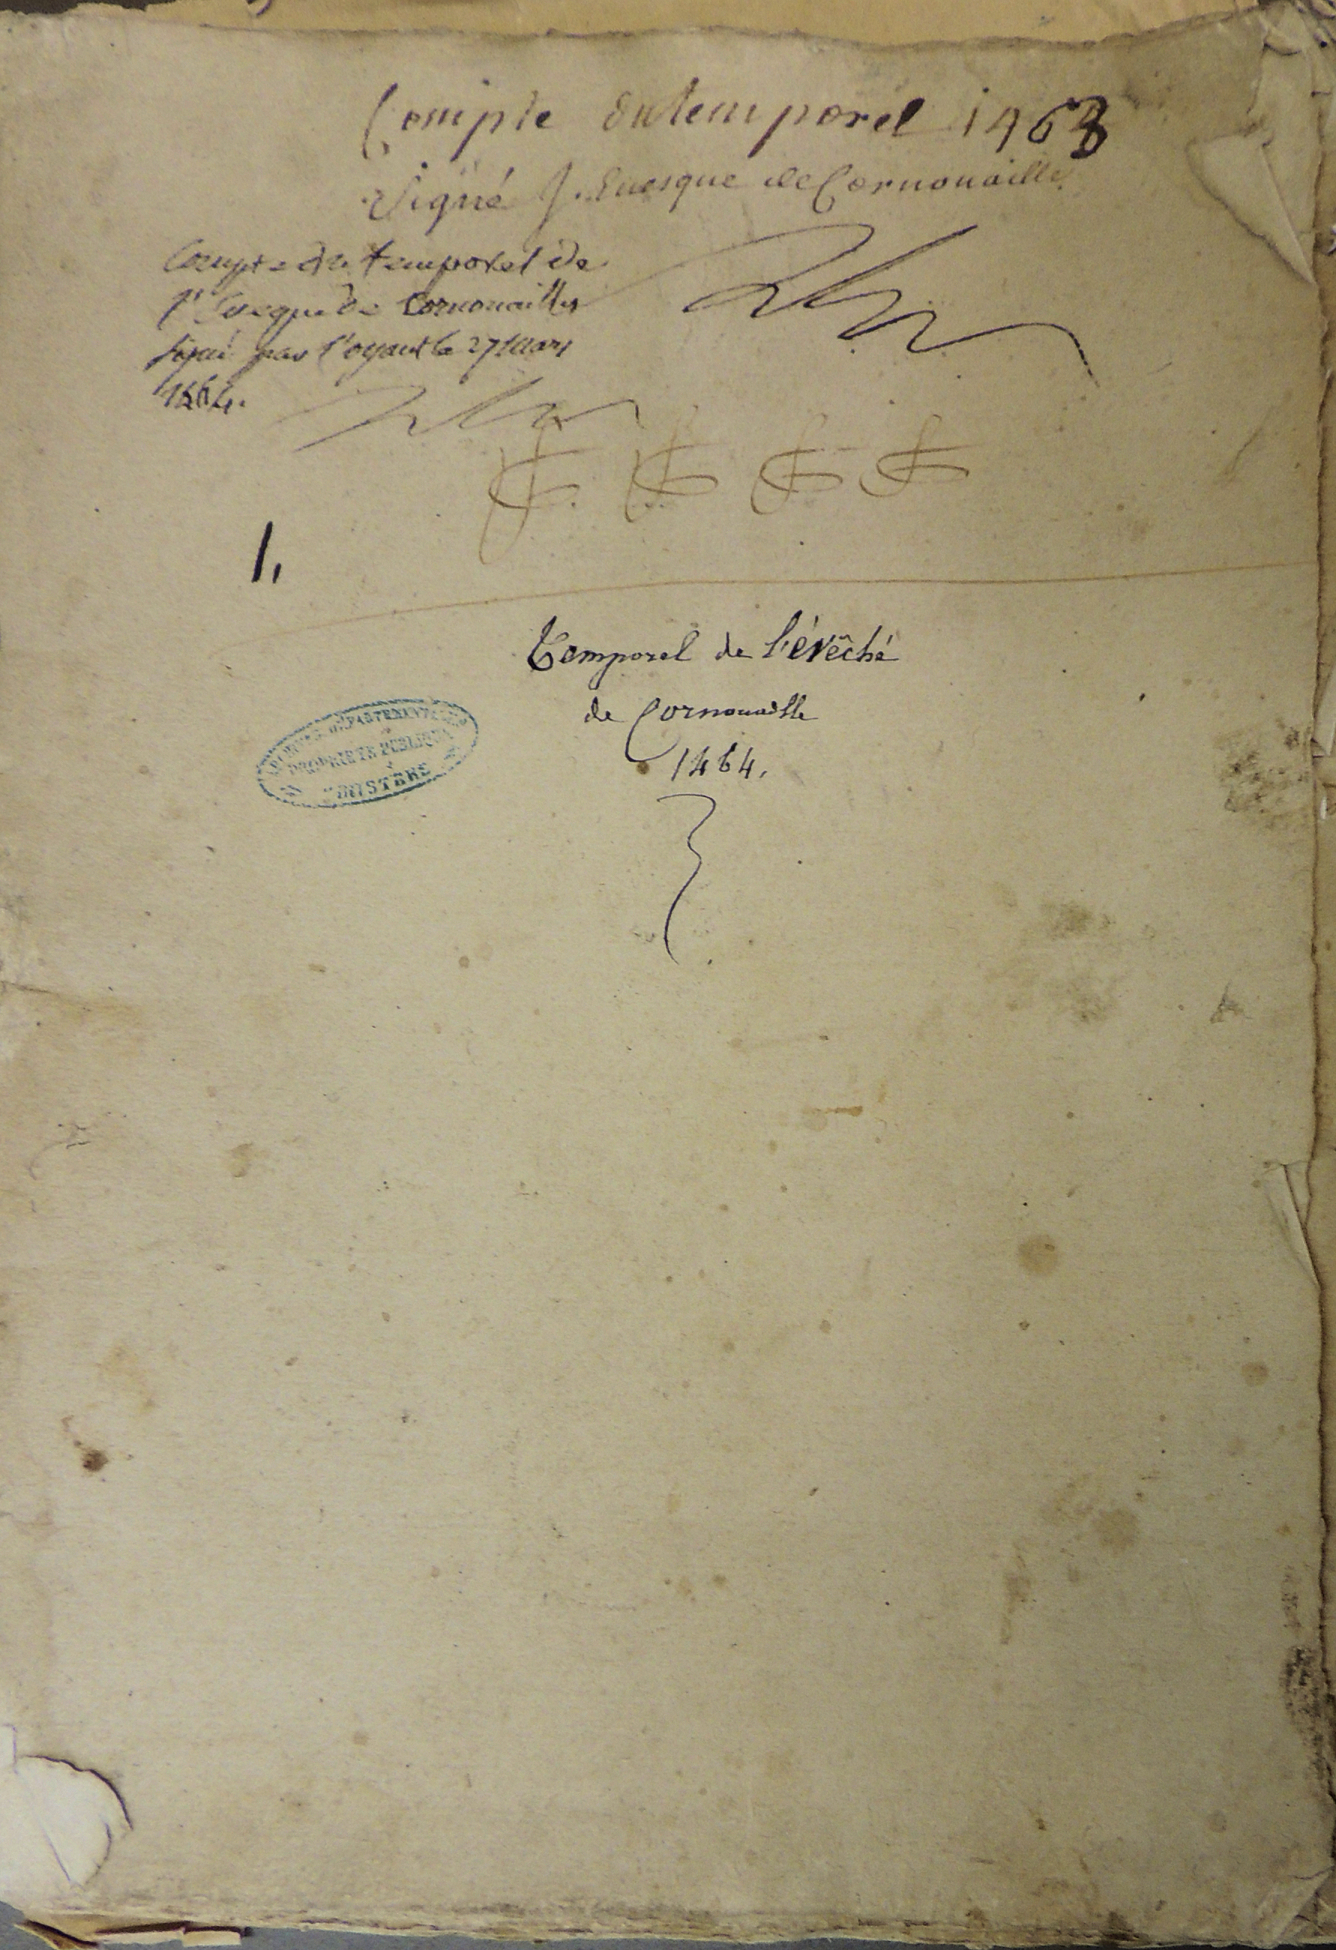 Compte du temporel 1463
Signé J. Euesque de Cornouaille
Compte du temporel de
l'Eueque de Cornouailles
signé par l'oyant le 27 mars
1464.
1,
Temporel de l'évêché
de Cornouaille
1464.
ARCHIVES DÉPARTEMENTALES
PROPRIÉTÉ PUBLIQUE
FINISTERE